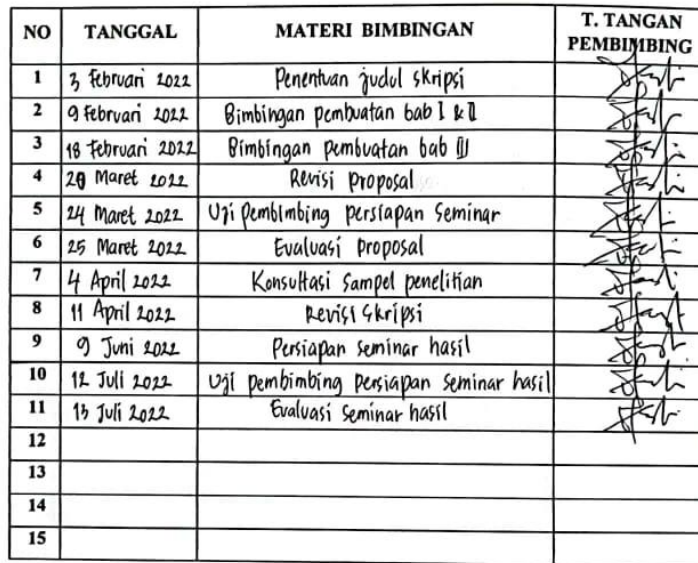 NO TANGGAL MATERI BIMBINGAN T. TANGAN PEMBIMBING
1 3 Februari 2022 Penentuan judul skripsi
2 9 Februari 2022 Bimbingan pembuatan bab I & II
3 18 Februari 2022 Bimbingan pembuatan bab III
4 20 Maret 2022 Revisi Proposal
5 24 Maret 2022 Uji Pembimbing persiapan Seminar
6 25 Maret 2022 Evaluasi Proposal
7 4 April 2022 Konsultasi Sampel penelitian
8 11 April 2022 Revisi Skripsi
9 9 Juni 2022 Persiapan seminar hasil
10 12 Juli 2022 Uji pembimbing persiapan Seminar hasil
11 13 Juli 2022 Evaluasi Seminar hasil
12
13
14
15